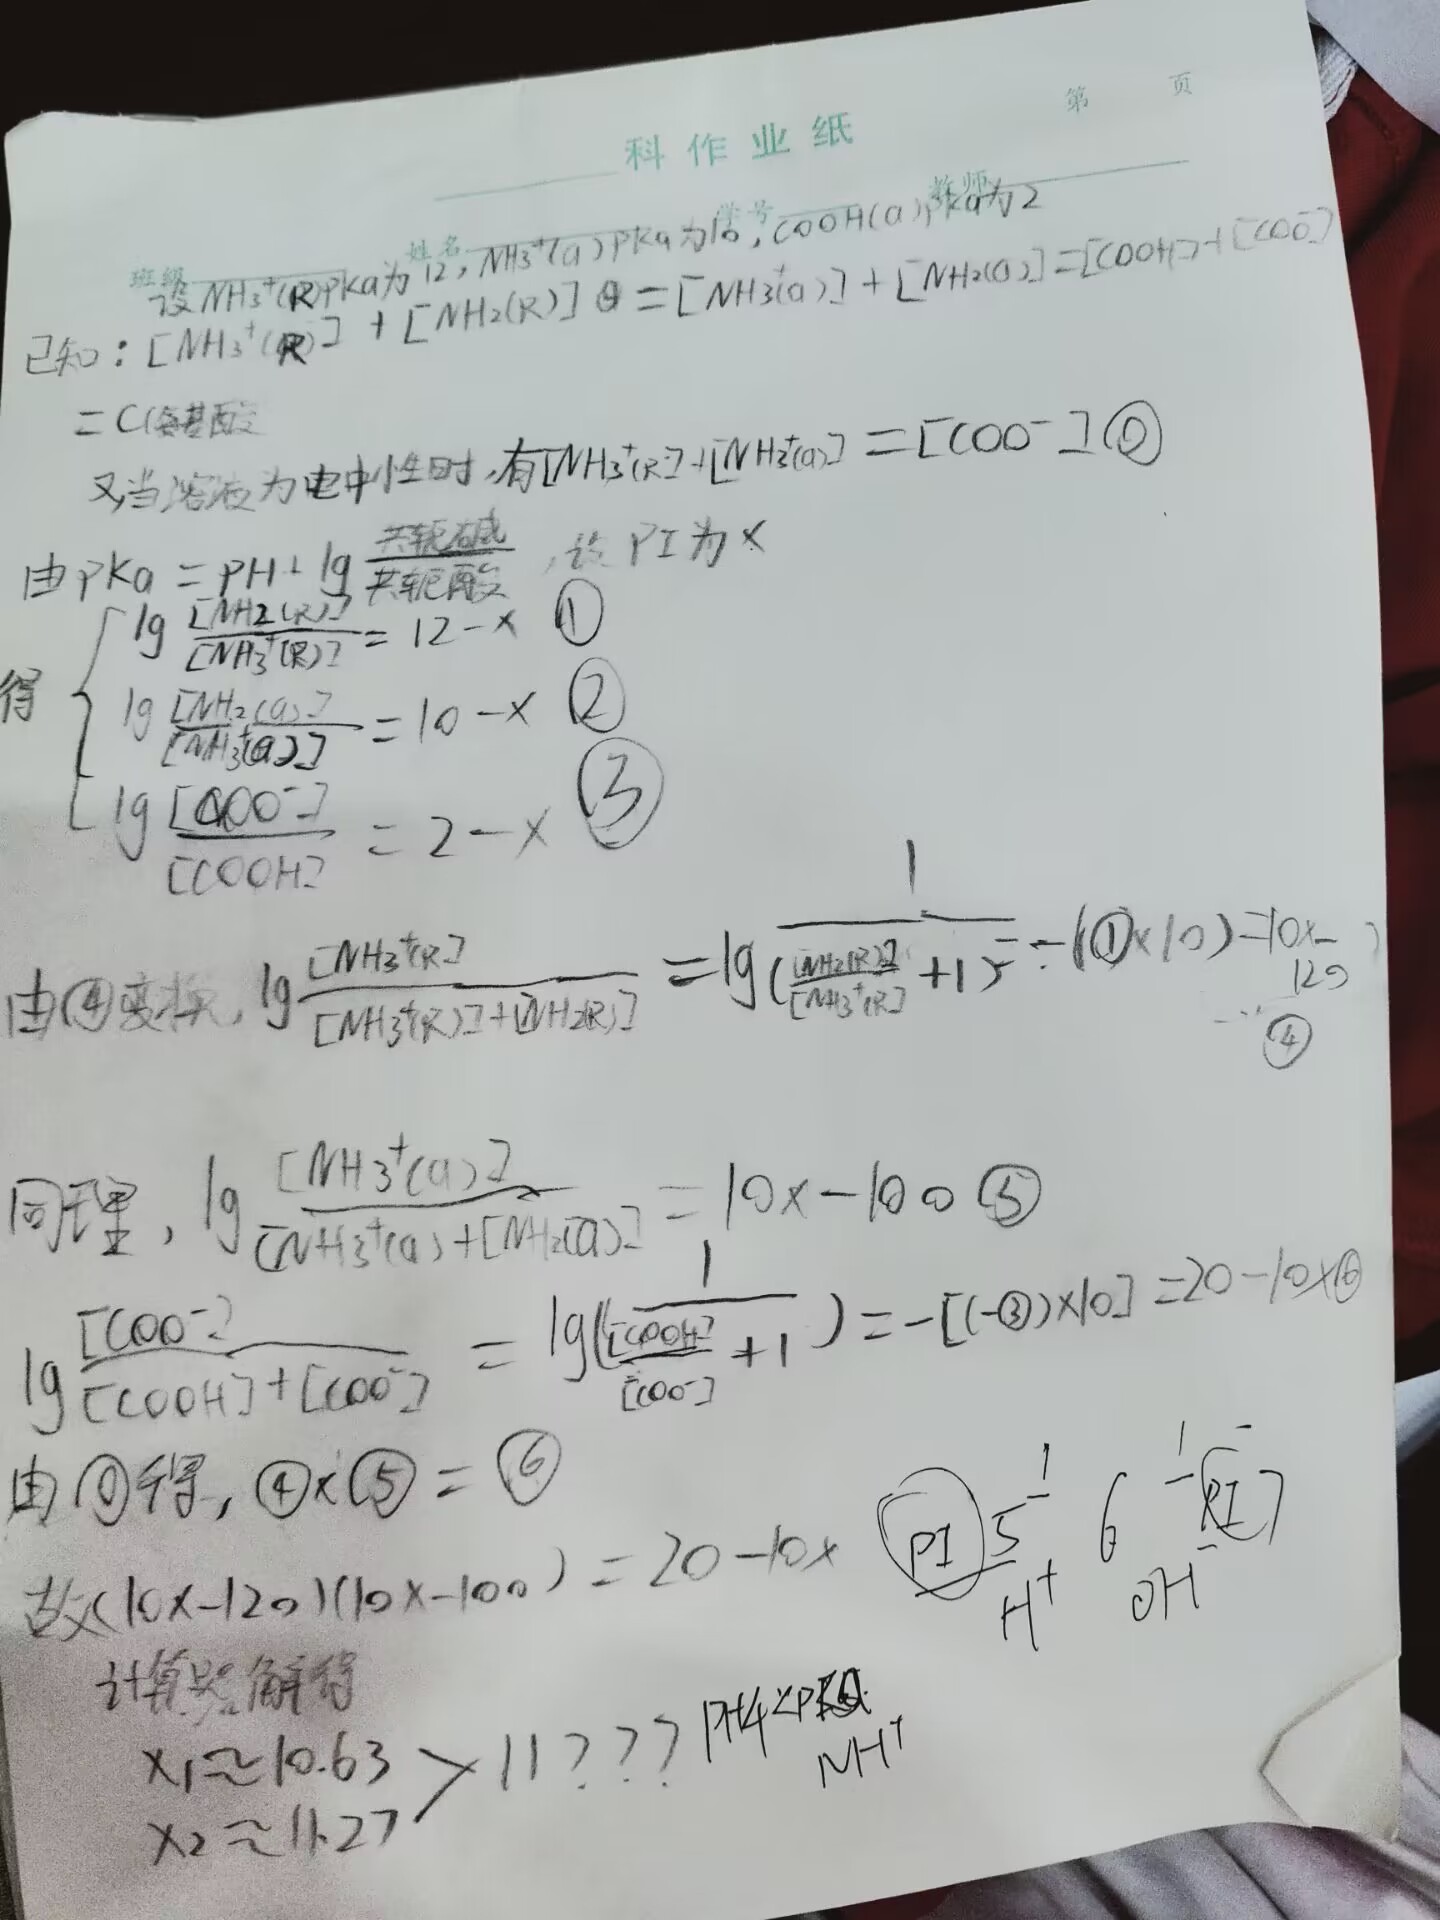 第 页
科作业纸
班级 姓名 学号 教师
设NH₃⁺(R)pKa为12, NH₃⁺(a)PKa为10, COOH(a)pKa为2
已知:[NH₃⁺(R)]+[NH₂(R)]=[NH₃⁺(a)]+[NH₂(a)]=[COOH]+[COO⁻]
=C(氨基酸
又当溶液为电中性时,有[NH₃⁺(R)]+[NH₃⁺(a)]=[COO⁻]⓪
由pKa=PH+lg 共轭碱/共轭酸,设PI为x
得 lg [NH₂(R)]/[NH₃⁺(R)]=12-x ①
lg [NH₂(a)]/[NH₃⁺(a)]=10-x ②
lg [COO⁻]/[COOH]=2-x ③
由④变换, lg [NH₃⁺(R)]/[NH₃⁺(R)]+[NH₂(R)]=lg 1/([NH₂(R)]/[NH₃⁺(R)]+1)=-(①×10)=10x-120
…④
同理, lg [NH₃⁺(a)]/[NH₃⁺(a)+[NH₂(a)]=10x-100⑤
lg [COO⁻]/[COOH]+[COO⁻]=lg(1/[COOH]/[COO⁻]+1)=-[(-③)×10]=20-10x⑥
由⓪得,④×⑤=⑥
故(10x-120)(10x-100)=20-10x
PI 5 6 PI 7
H⁺ OH⁻
计算器解得
x₁≈10.63
x₂≈11.27
>11???
PH4<PKa
NH⁺